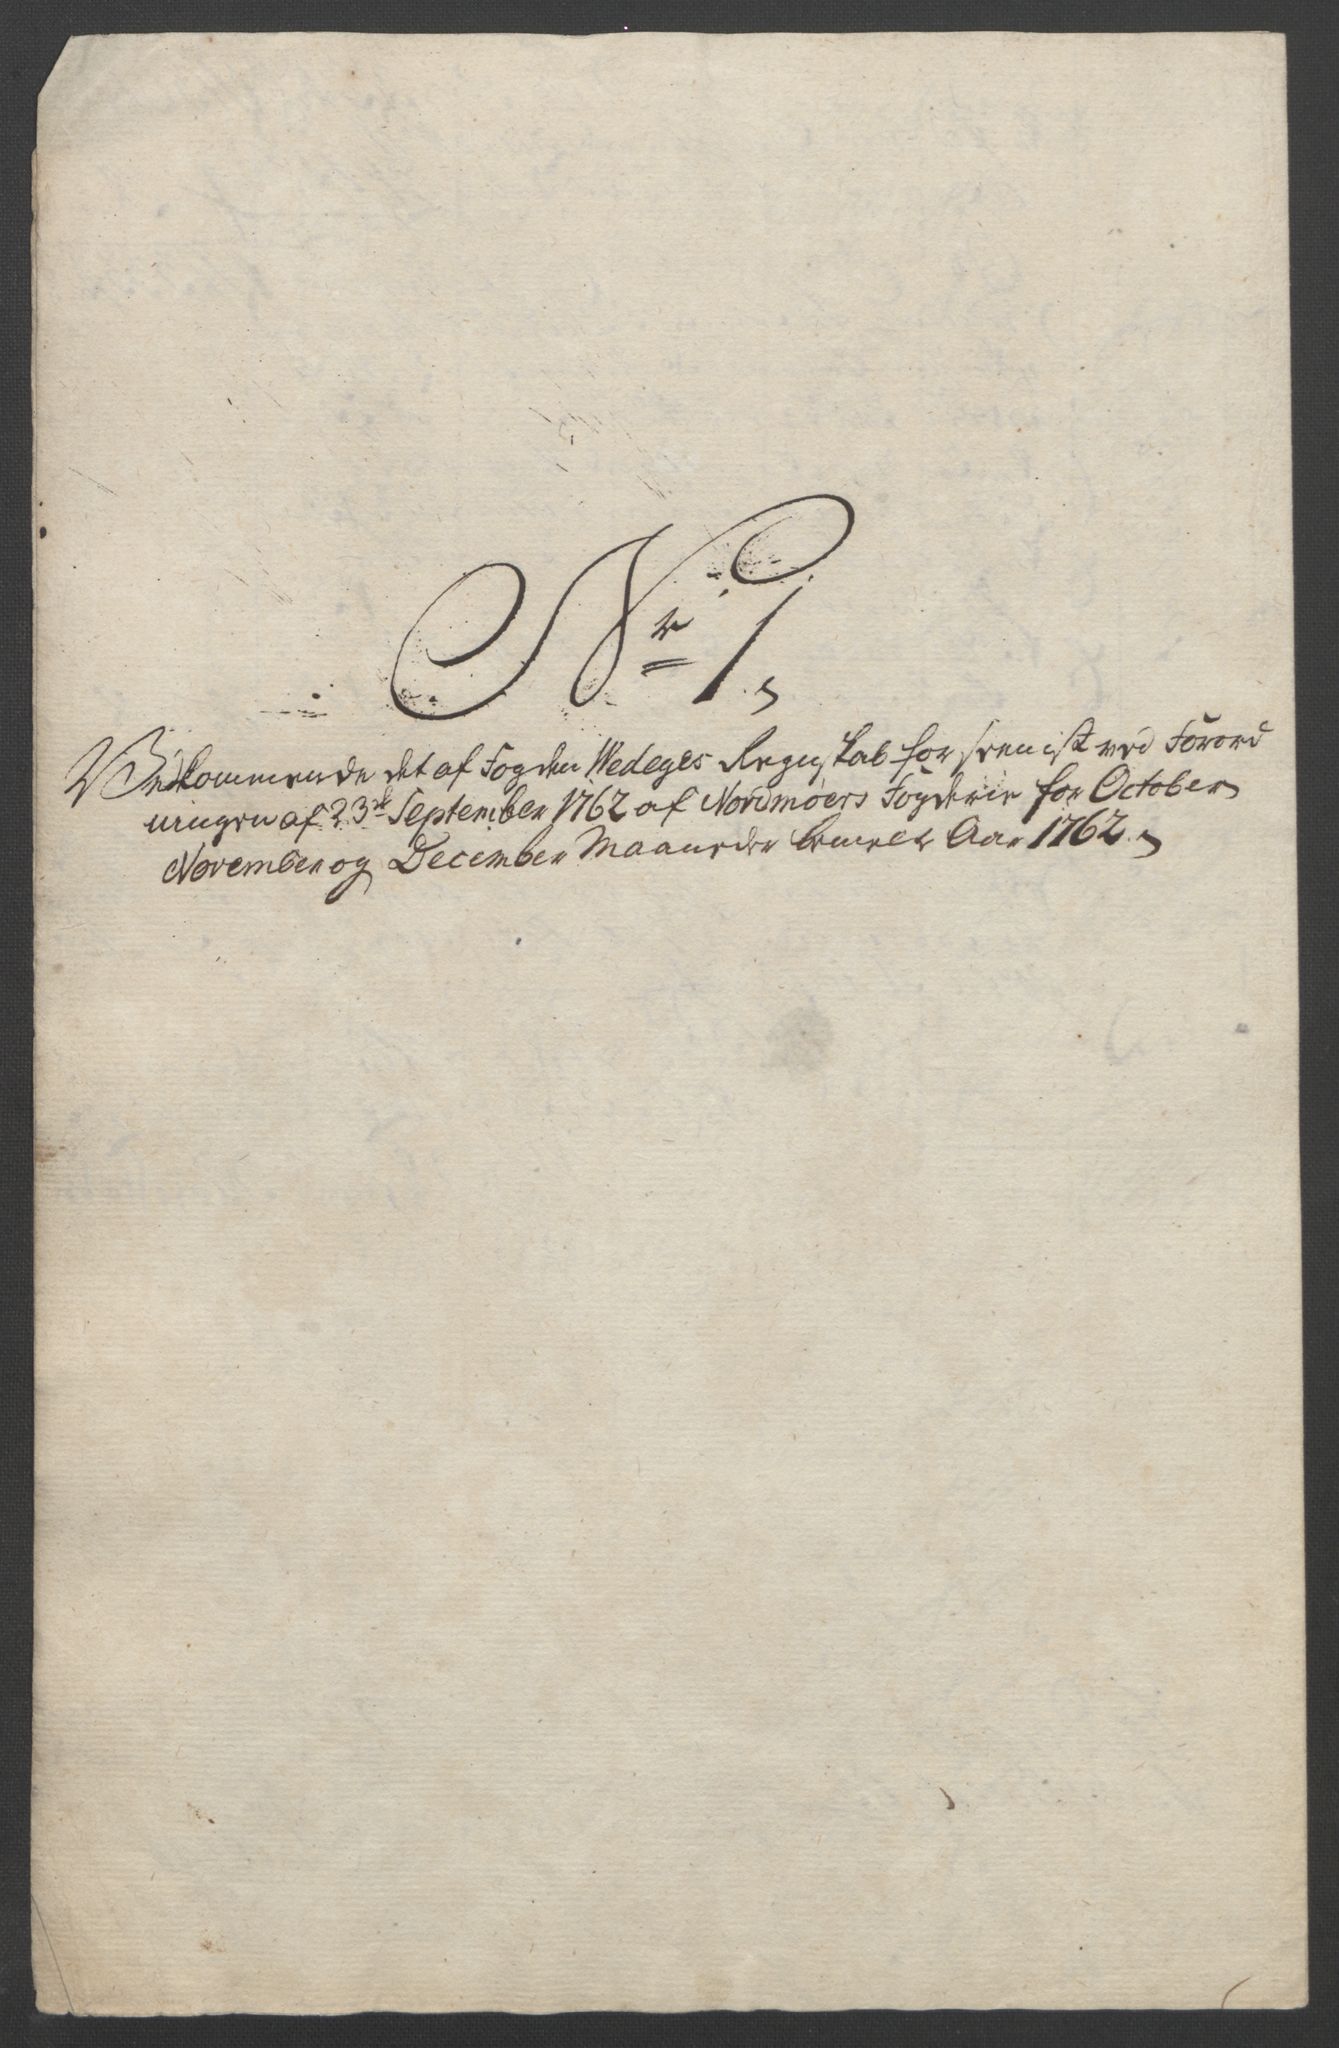 Nr 1.
Vedkommende det af Fogden Wedeges Regnskab for Skatt ved Forord
ningen af 23de September 1762 af Nordmøers Fogderie for October
November og December Maaneder bemelte Aar 1762.